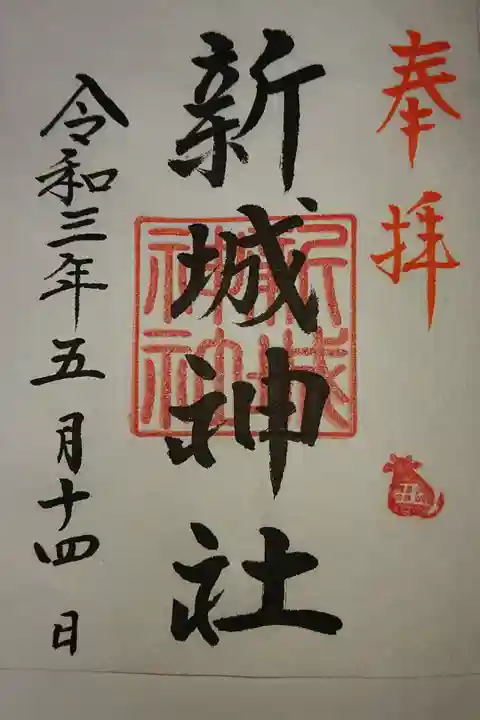 奉拝
丑
新城神社
新城神社
令和三年五月十四日